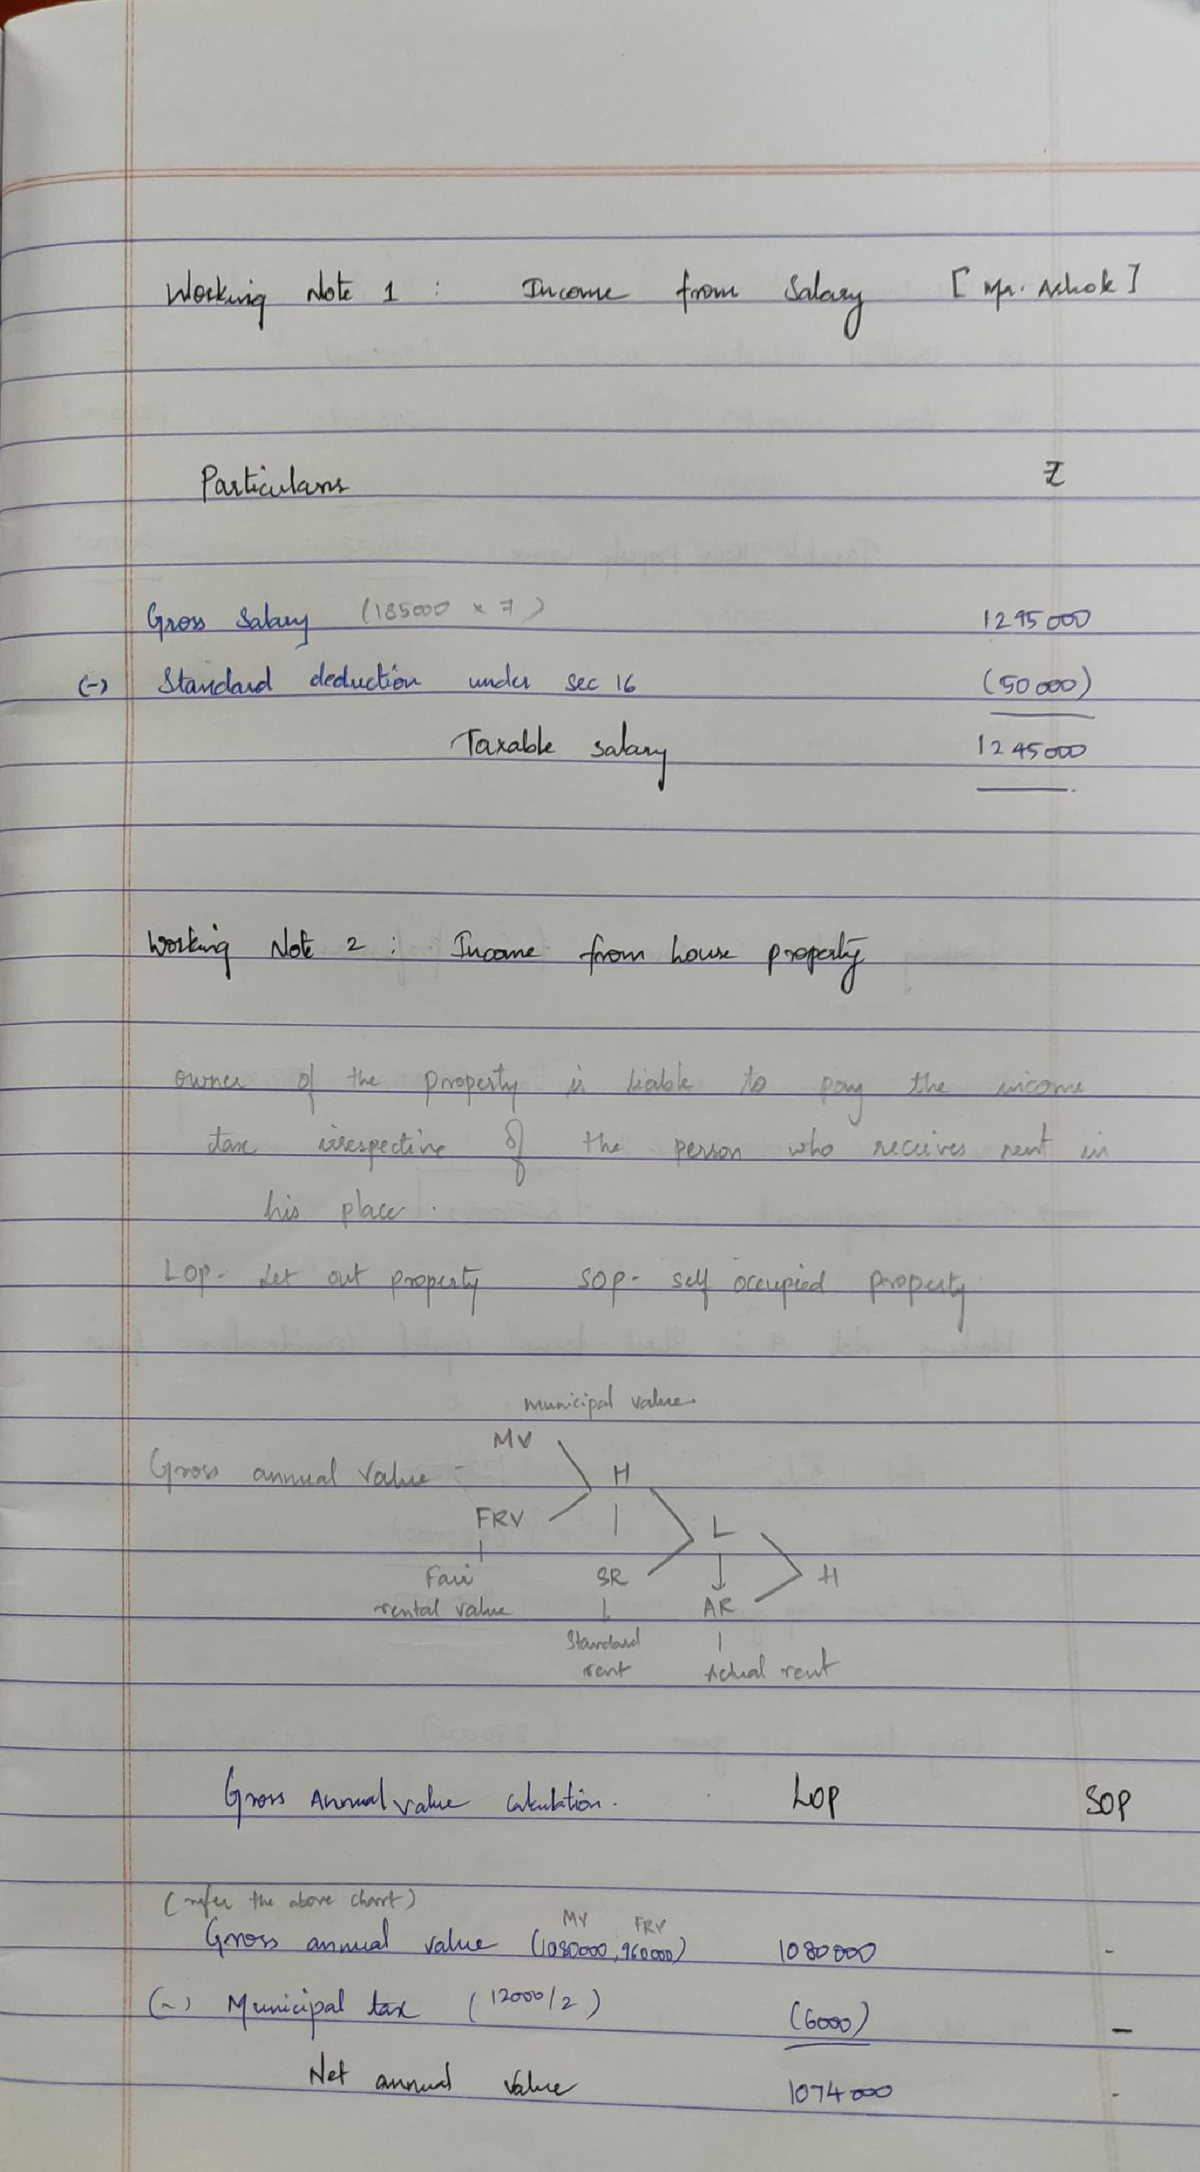 Working Note 1 : Income from Salary [Mr. Ashok]
Particulars ₹
Gross Salary (185000 x 7) 1295000
(-) Standard deduction under sec 16 (50000)
Taxable salary 1245000
Working Note 2 : Income from house property
owner of the property is liable to pay the income
tax irrespective of the person who receives rent in
his place.
LOP- Let out property SOP- self occupied property
municipal value.
MV
Gross annual value - H
FRV L
Fair SR H
rental value AR
Standard
rent Actual rent
Gross Annual value calculation. LOP SOP
(refer the above chart) MV FRV
Gross annual value (1080000, 960000) 1080000 -
(-) Municipal tax (12000/2) (6000) -
Net annual value 1074000 -